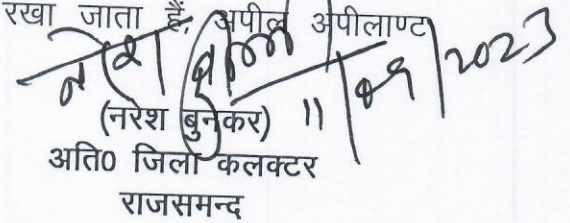 रखा जाता हैं, अपील अपीलाण्ट
11/09/2023
(नरेश बुनकर)
अति0 जिला कलक्टर
राजसमन्द